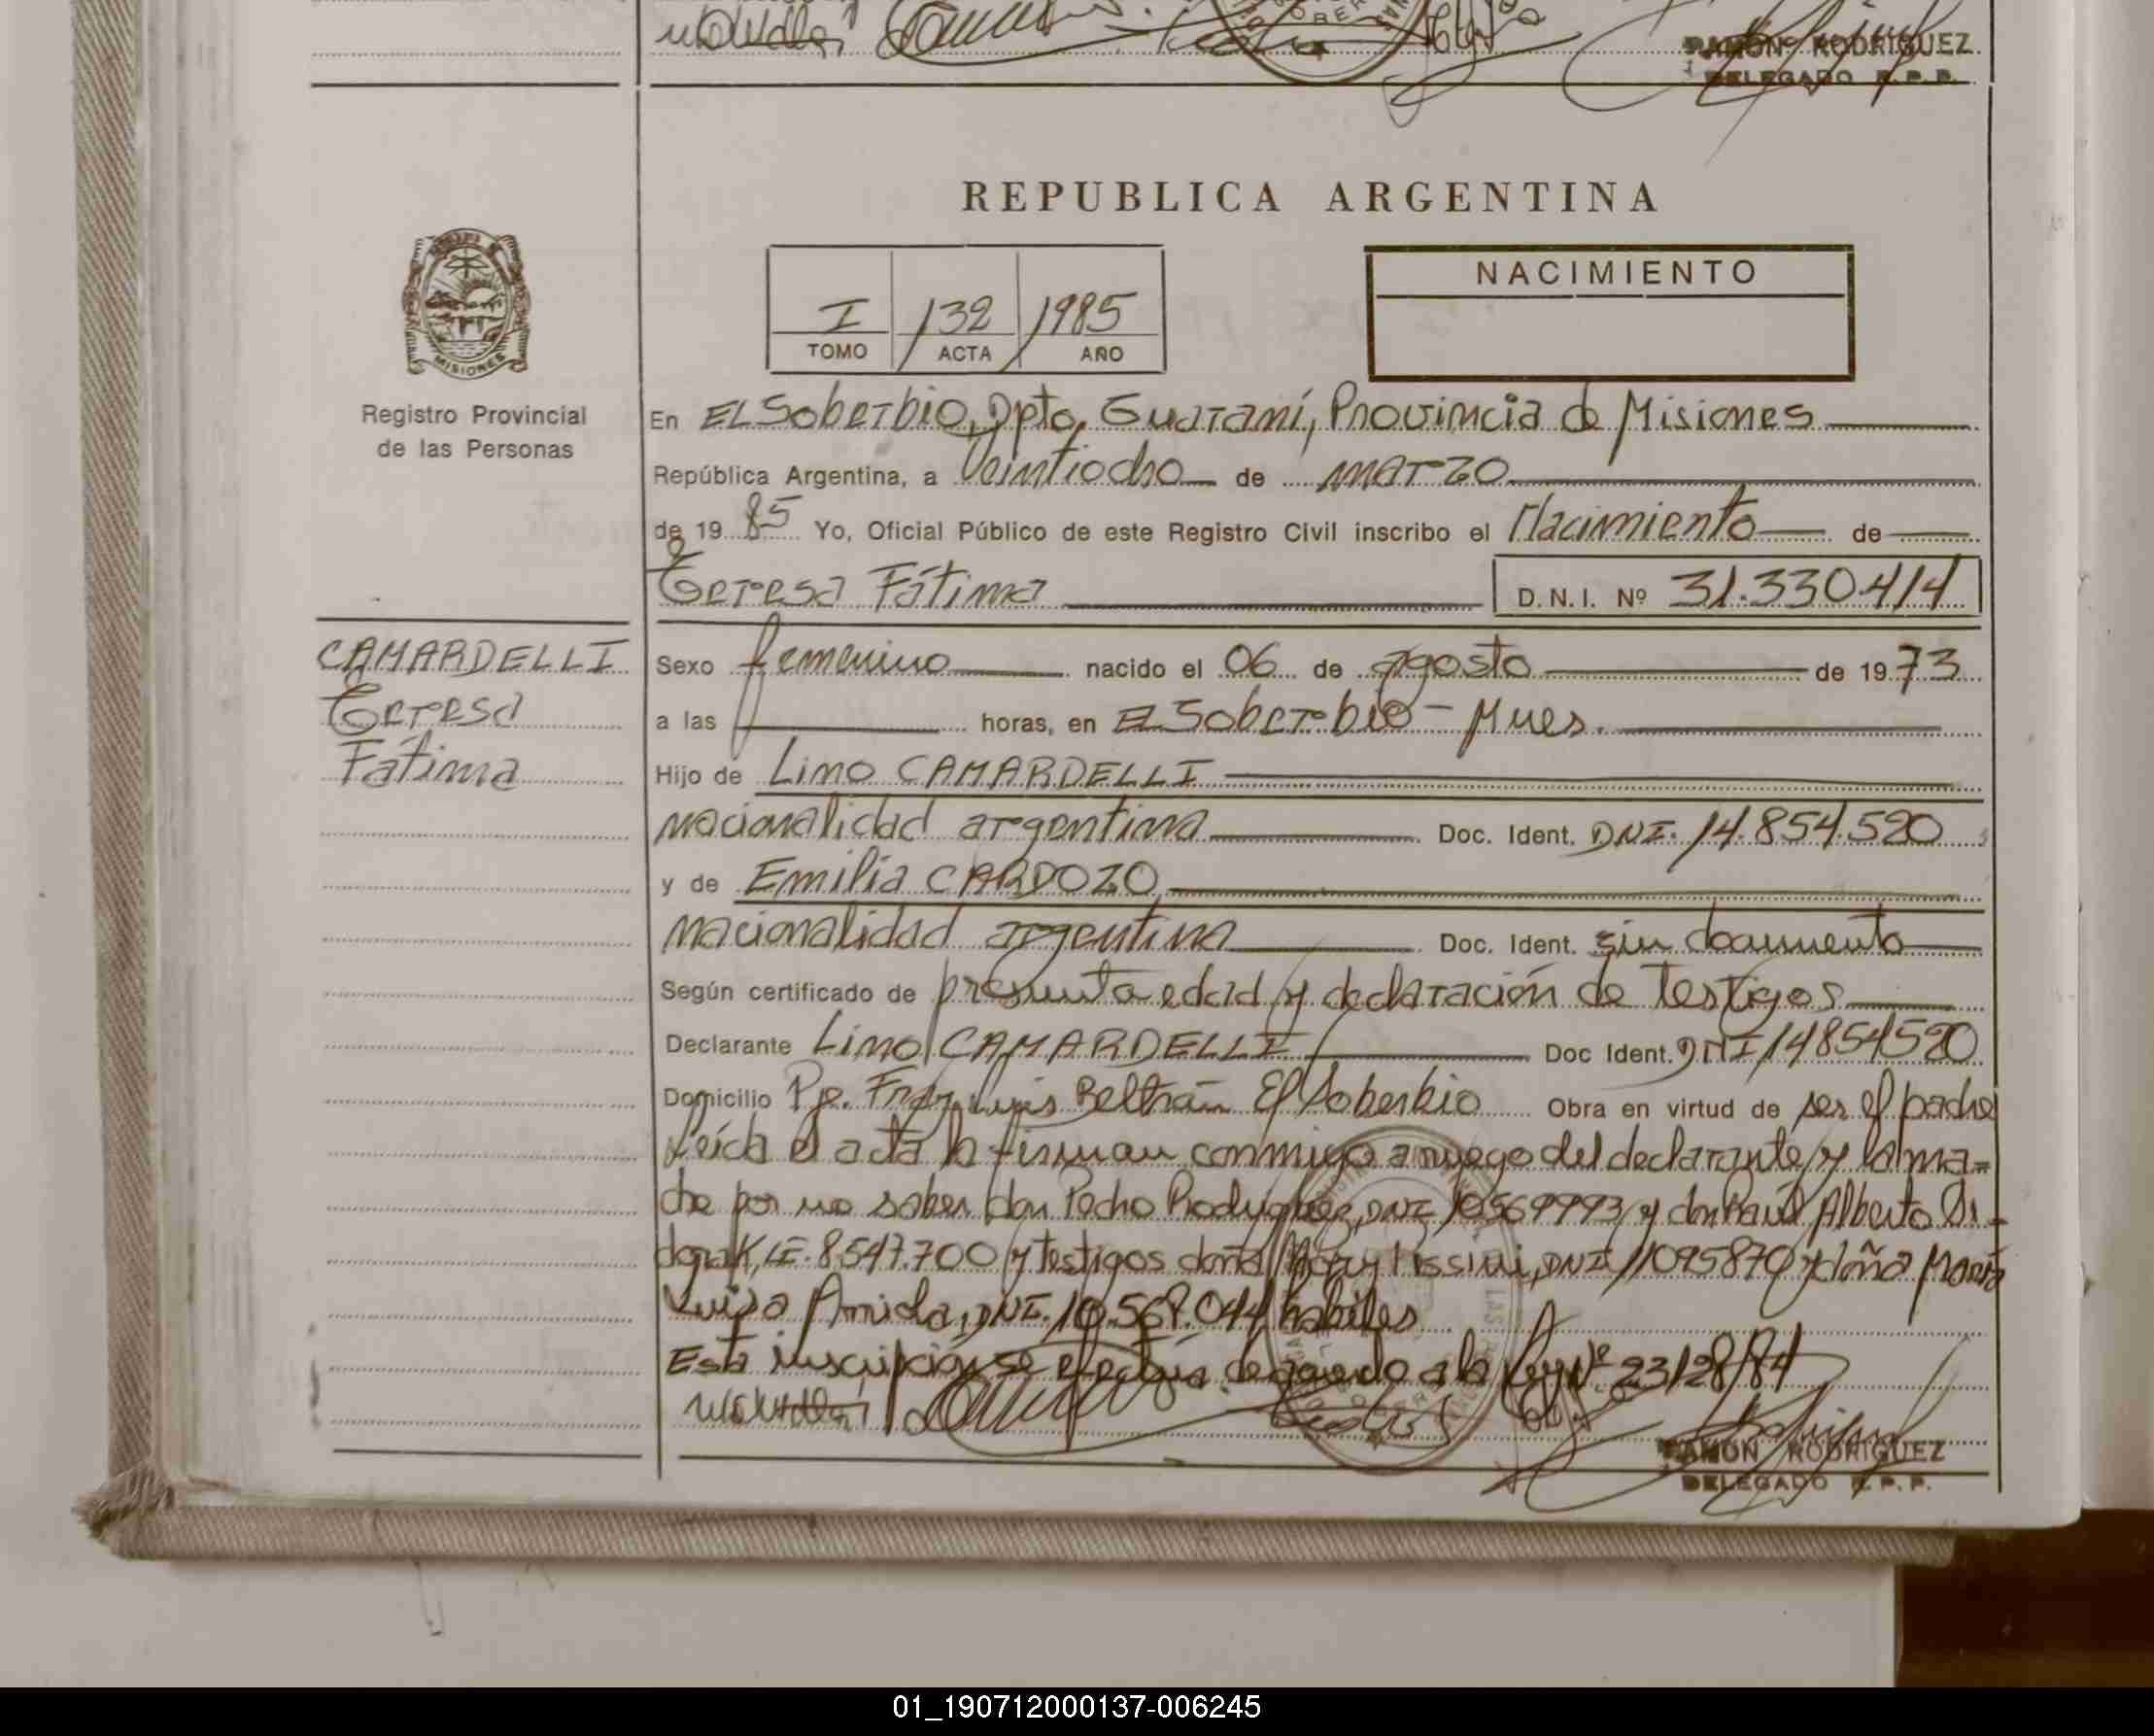 RAMON RODRIGUEZ
DELEGADO R.P.P.
REPUBLICA ARGENTINA
I 132 1985
TOMO ACTA AÑO
NACIMIENTO
MISIONES
Registro Provincial
de las Personas
En EL Soberbio, Dpto, Guaraní, Provincia de Misiones
República Argentina, a Veintiocho de marzo
de 19 85 Yo, Oficial Público de este Registro Civil inscribo el Nacimiento de
Teresa Fátima D.N.I. Nº 31.330.414
CAMARDELLI
Teresa
Fátima
Sexo femenino nacido el 06 de agosto de 19 73
a las horas, en EL Soberbio - Mnes.
Hijo de Lino CAMARDELLI
nacionalidad argentina Doc. Ident. DNI. 14.854.520
y de Emilia CARDOZO
nacionalidad argentina Doc. Ident. sin documento
Según certificado de presunta edad y declaración de testigos
Declarante Lino CAMARDELLI Doc Ident. DNI 14854520
Domicilio Pje. Fray Luis Beltrán El Soberbio Obra en virtud de ser el padre
Leída el acta la firman conmigo a ruego del declarante y la ma=
dre por no saber don Pedro Rodriguez, DNI 10569993 y don Raúl Alberto
LE. 8.547.700 y testigos doña Mary DNI 11095870 y doña María
Luisa DNI. 10.568.044 habiles
Esta inscripción se efectúa de acuerdo a la Ley Nº 23128/84
RAMON RODRIGUEZ
DELEGADO R.P.P.
01_190712000137-006245